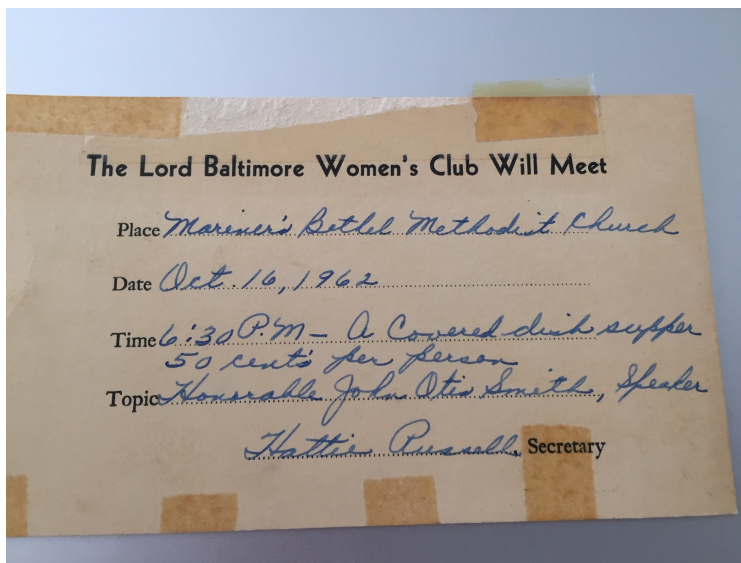 The Lord Baltimore Women's Club Will Meet
Place Mariner's Bethel Methodist Church
Date Oct. 16, 1962
Time 6:30 P.M — A Covered dish supper
50 cents per person
Topic Honorable John Otis Smith, Speaker
Hattie Russell, Secretary